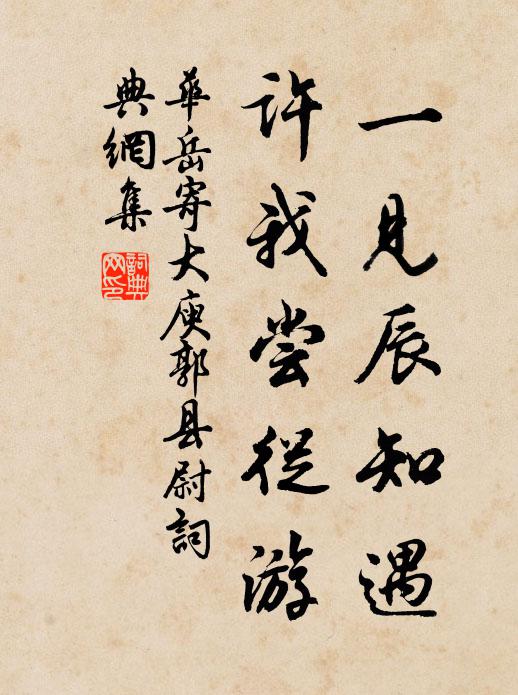 一見辰知遇
許我嘗從游
華岳寄大庾郭县尉詞
典網集
詞典網印